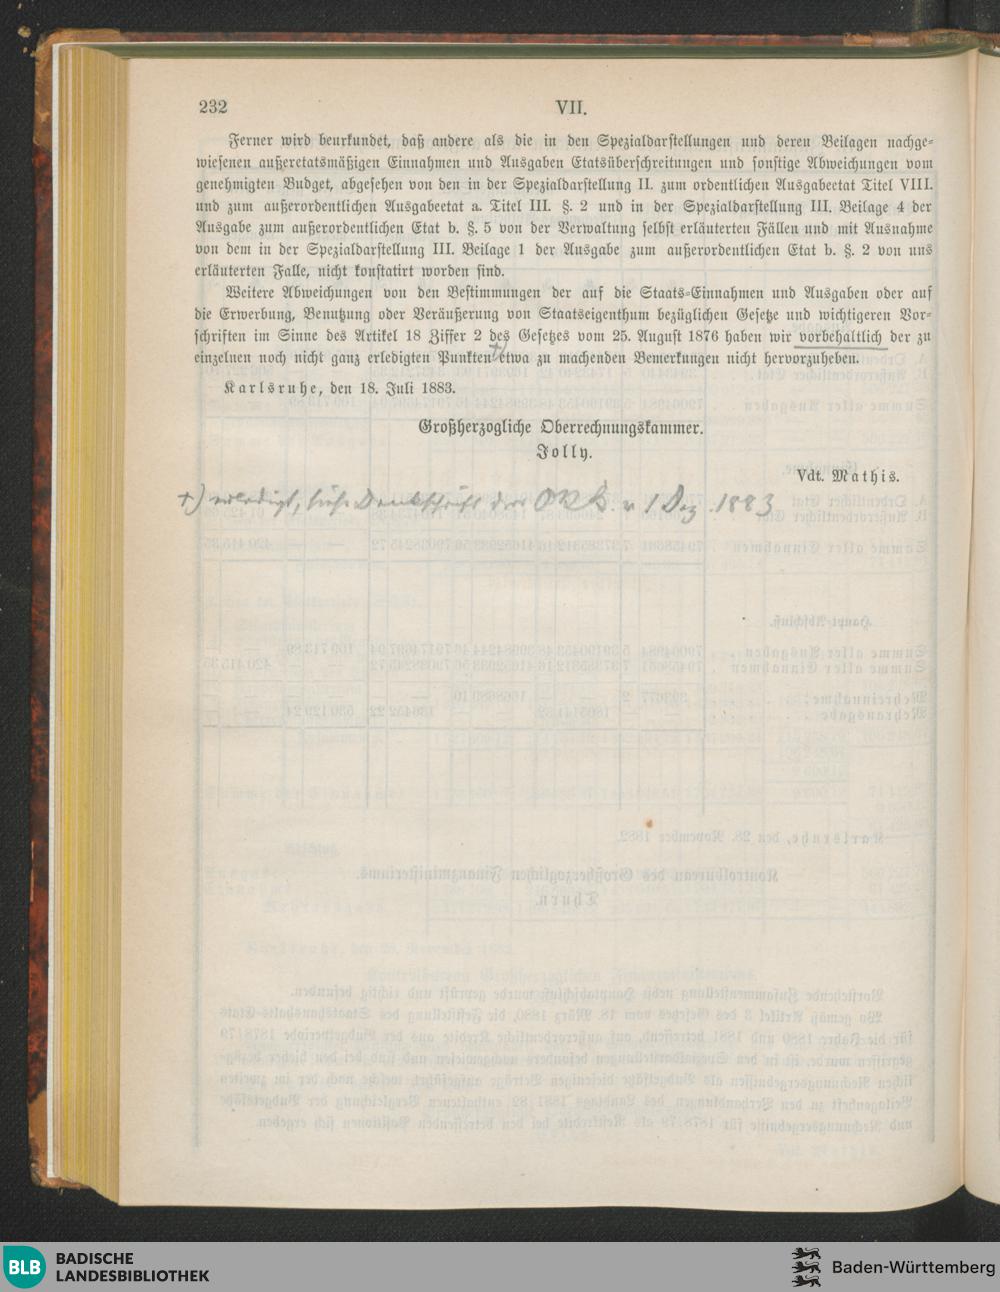 232 VII.
Ferner wird beurkundet, daß andere als die in den Spezialdarstellungen und deren Beilagen nachge-
wiesenen außeretatsmäßigen Einnahmen und Ausgaben Etatsüberschreitungen und sonstige Abweichungen vom
genehmigten Budget, abgesehen von den in der Spezialdarstellung II. zum ordentlichen Ausgabeetat Titel VIII.
und zum außerordentlichen Ausgabeetat a. Titel III. §. 2 und in der Spezialdarstellung III. Beilage 4 der
Ausgabe zum außerordentlichen Etat b. §. 5 von der Verwaltung selbst erläuterten Fällen und mit Ausnahme
von dem in der Spezialdarstellung III. Beilage 1 der Ausgabe zum außerordentlichen Etat b. §. 2 von uns
erläuterten Falle, nicht konstatirt worden sind.
Weitere Abweichungen von den Bestimmungen der auf die Staats-Einnahmen und Ausgaben oder auf
die Erwerbung, Benutzung oder Veräußerung von Staatseigenthum bezüglichen Gesetze und wichtigeren Vor-
schriften im Sinne des Artikel 18 Ziffer 2 des Gesetzes vom 25. August 1876 haben wir vorbehaltlich der zu
einzelnen noch nicht ganz erledigten Punkten +) etwa zu machenden Bemerkungen nicht hervorzuheben.
Karlsruhe, den 18. Juli 1883.
Großherzogliche Oberrechnungskammer.
Jolly.
Vdt. Mathis.
+) erledigt, siehe Denkschrift der ORK. v 1 Dez. 1883
BLB BADISCHE
LANDESBIBLIOTHEK
Baden-Württemberg